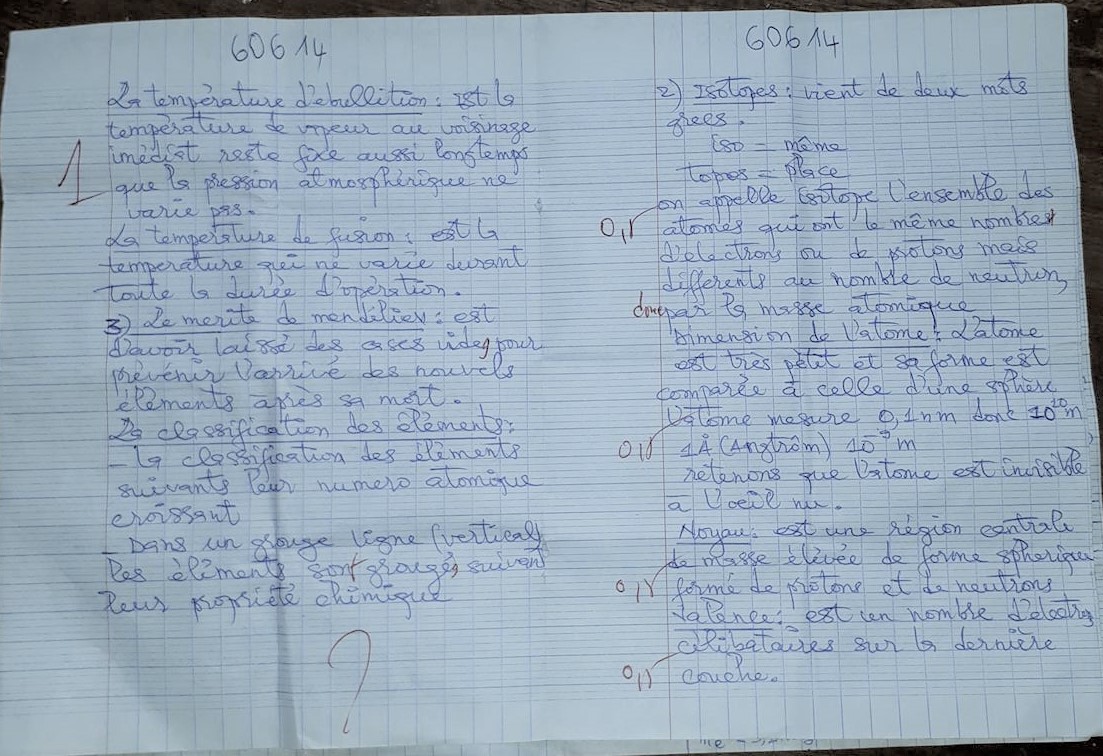 60614
La température d'ébullition : est la
température de vapeur au voisinage
imédiat reste fixe aussi longtemps
1
que la pression atmosphérique ne
varie pas.
La température de fusion : est la
temperature qui ne varie durant
toute la durée d'opération.
3) Le merite de mendiliev : est
d'avoir laissé des cases vides pour
prévenir l'arrivé des nouvels
éléments après sa mort.
La classification des éléments :
- la classification des éléments
suivants leur numero atomique
croissant
- Dans un groupe ligne (vertical)
les éléments sont groupés suivant
leur propriété chimique
?
60614
2) Isotopes : vient de deux mots
grecs.
iso = même
topos = place
on appelle isotope l'ensemble des
0,5
atomes qui ont le même nombres
d'électrons ou de protons mais
differents au nombre de neutron,
donc par la masse atomique
Dimension de l'atome : L'atome
est très pétit et sa forme est
comparée à celle d'une sphère
L'atome mesure 0,1nm donc 10¹⁰m
0,5
1Å (Angtrôm) 10⁻⁹m
retenons que l'atome est invisible
à l'oeil nu.
Noyau : est une région centrale
de masse élévée de forme spherique
0,5
formé de protons et de neutrons
Valence : est un nombre d'électrs
célibataires sur la dernière
0,5
couche.